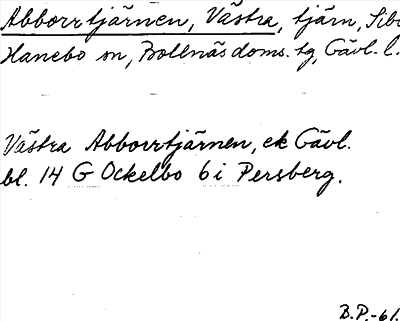 Abborrtjärnen, Västra, tjärn, Sibo
Hanebo sn, Bollnäs doms. tg, Gävl. l.
Västra Abborrtjärnen, ek Gävl.
bl. 14 G Ockelbo 6 i Persberg.
B.P.-61.